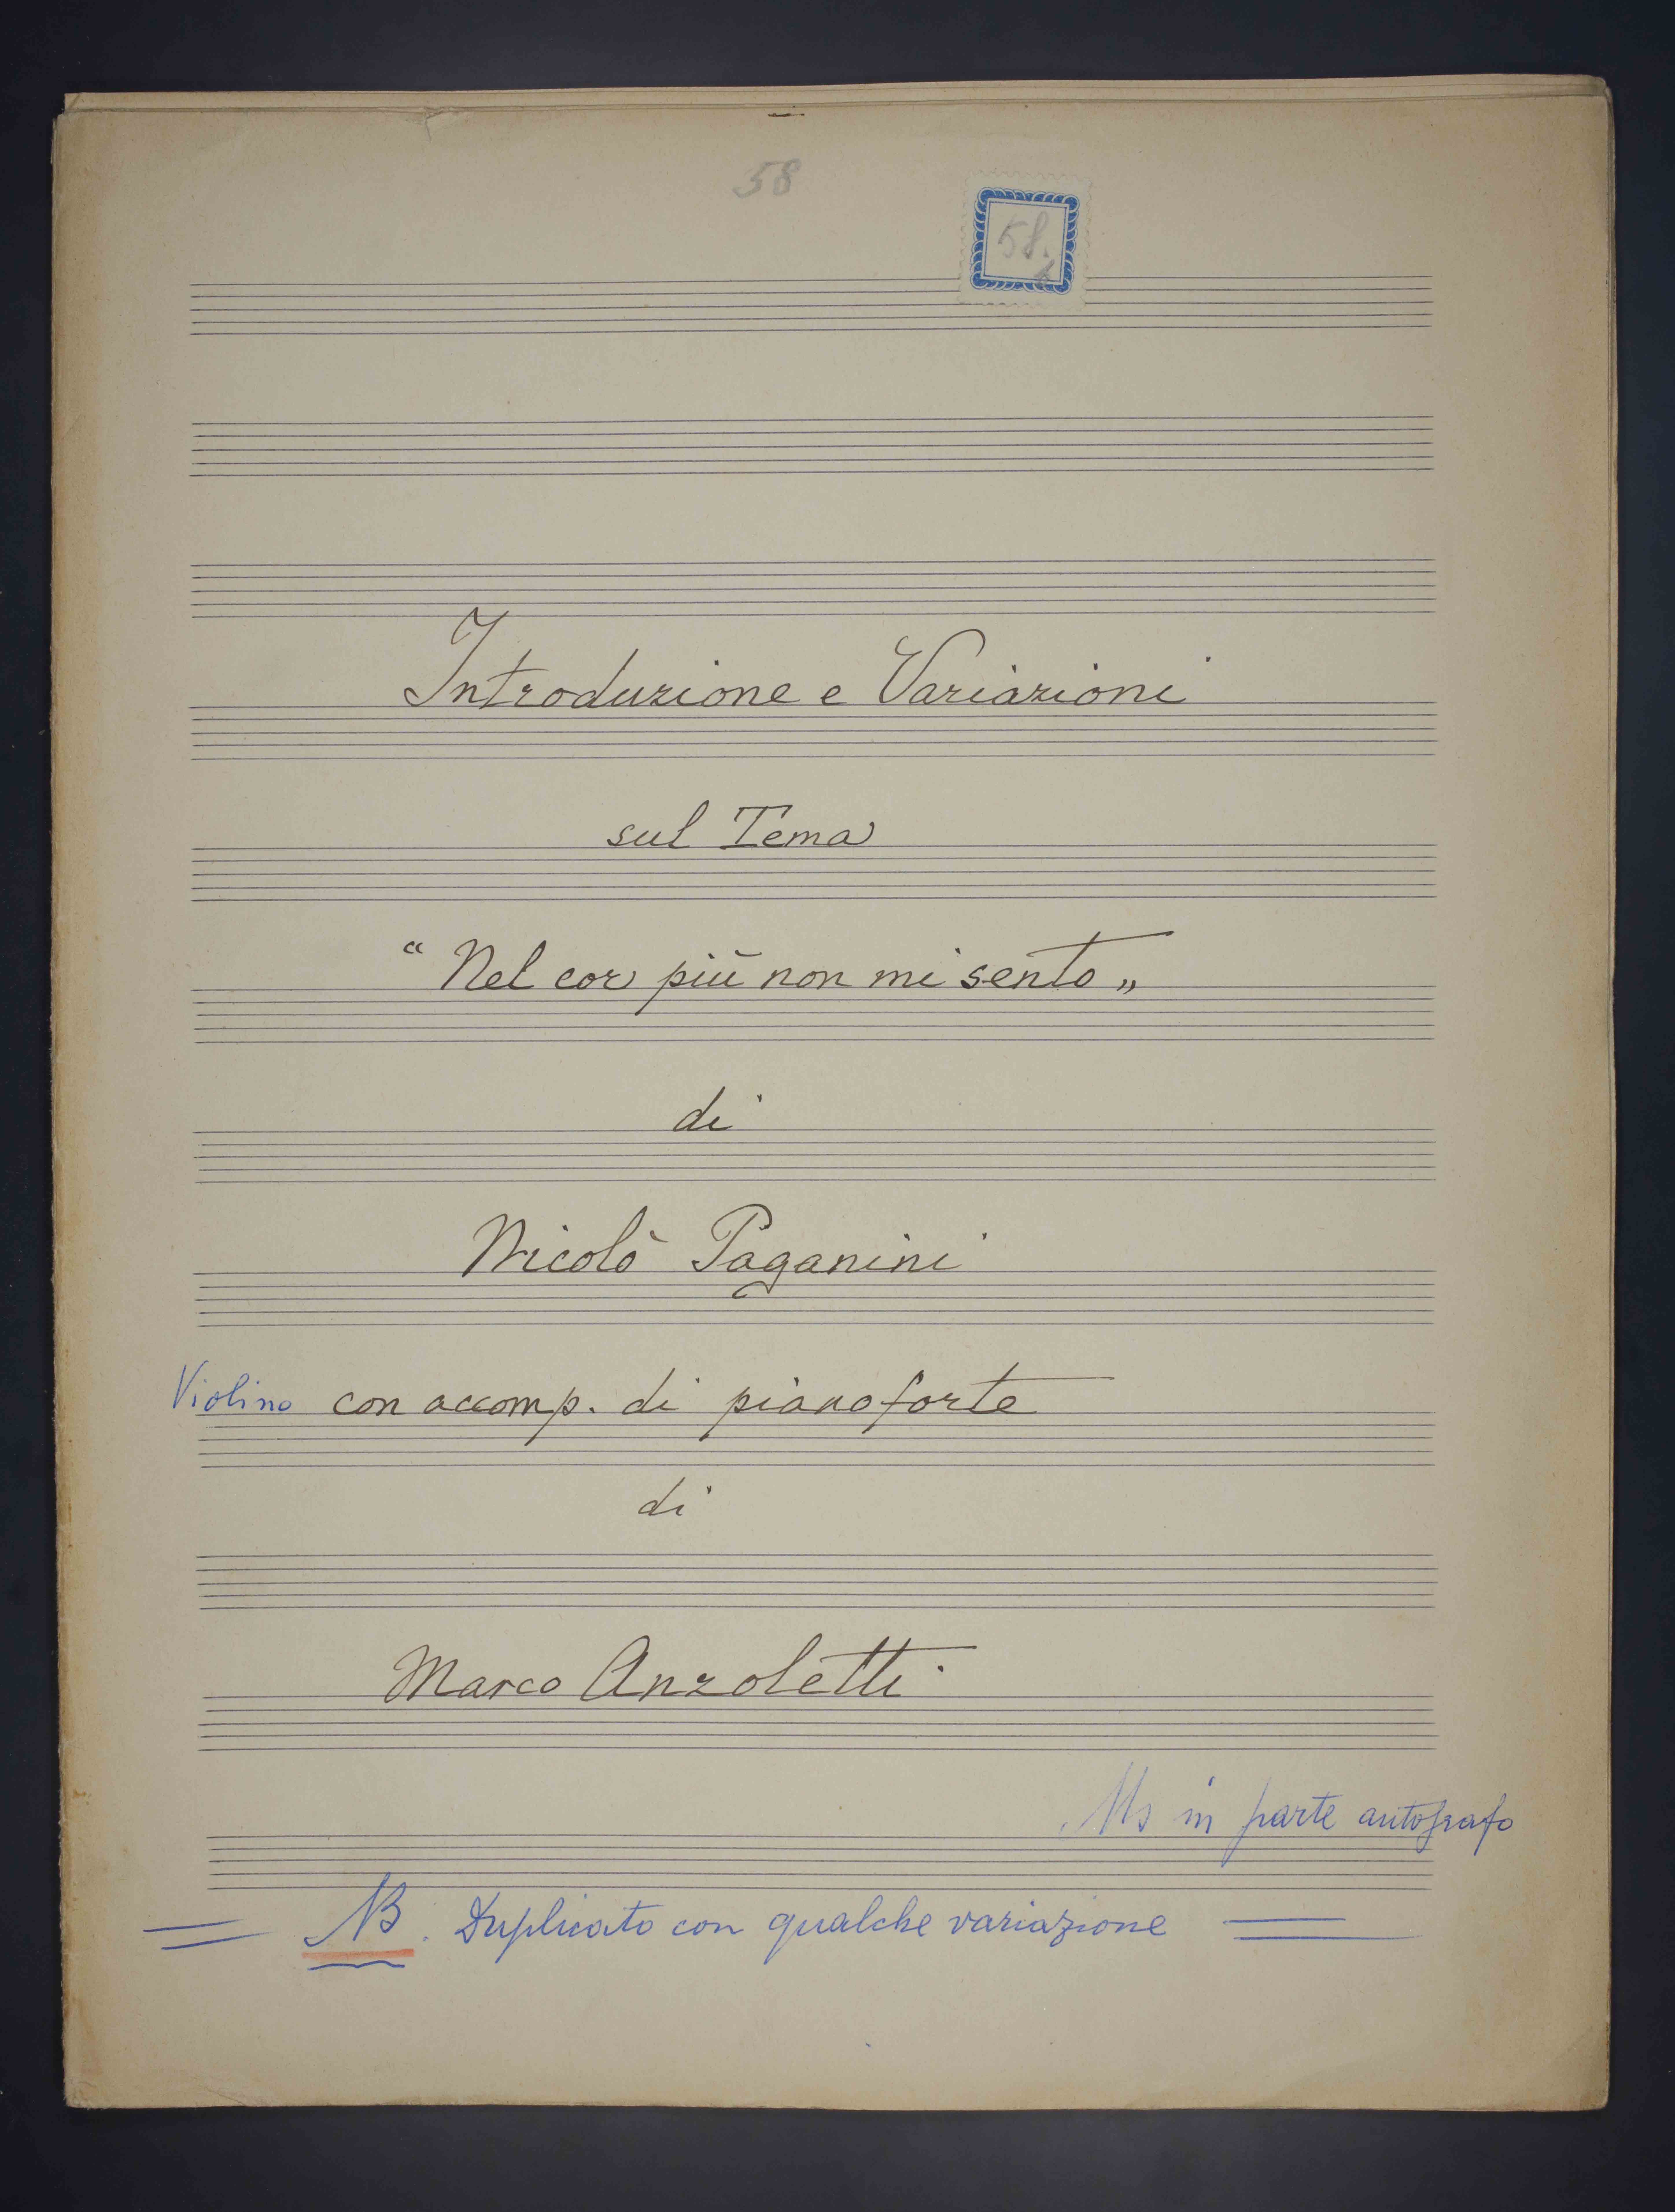 58
58.
Introduzione e Variazioni
sul Tema
“Nel cor più non mi sento„
di
Nicolò Paganini
Violino con accomp. di pianoforte
di
Marco Anzoletti
Ms in parte autografo
NB. Duplicato con qualche variazione